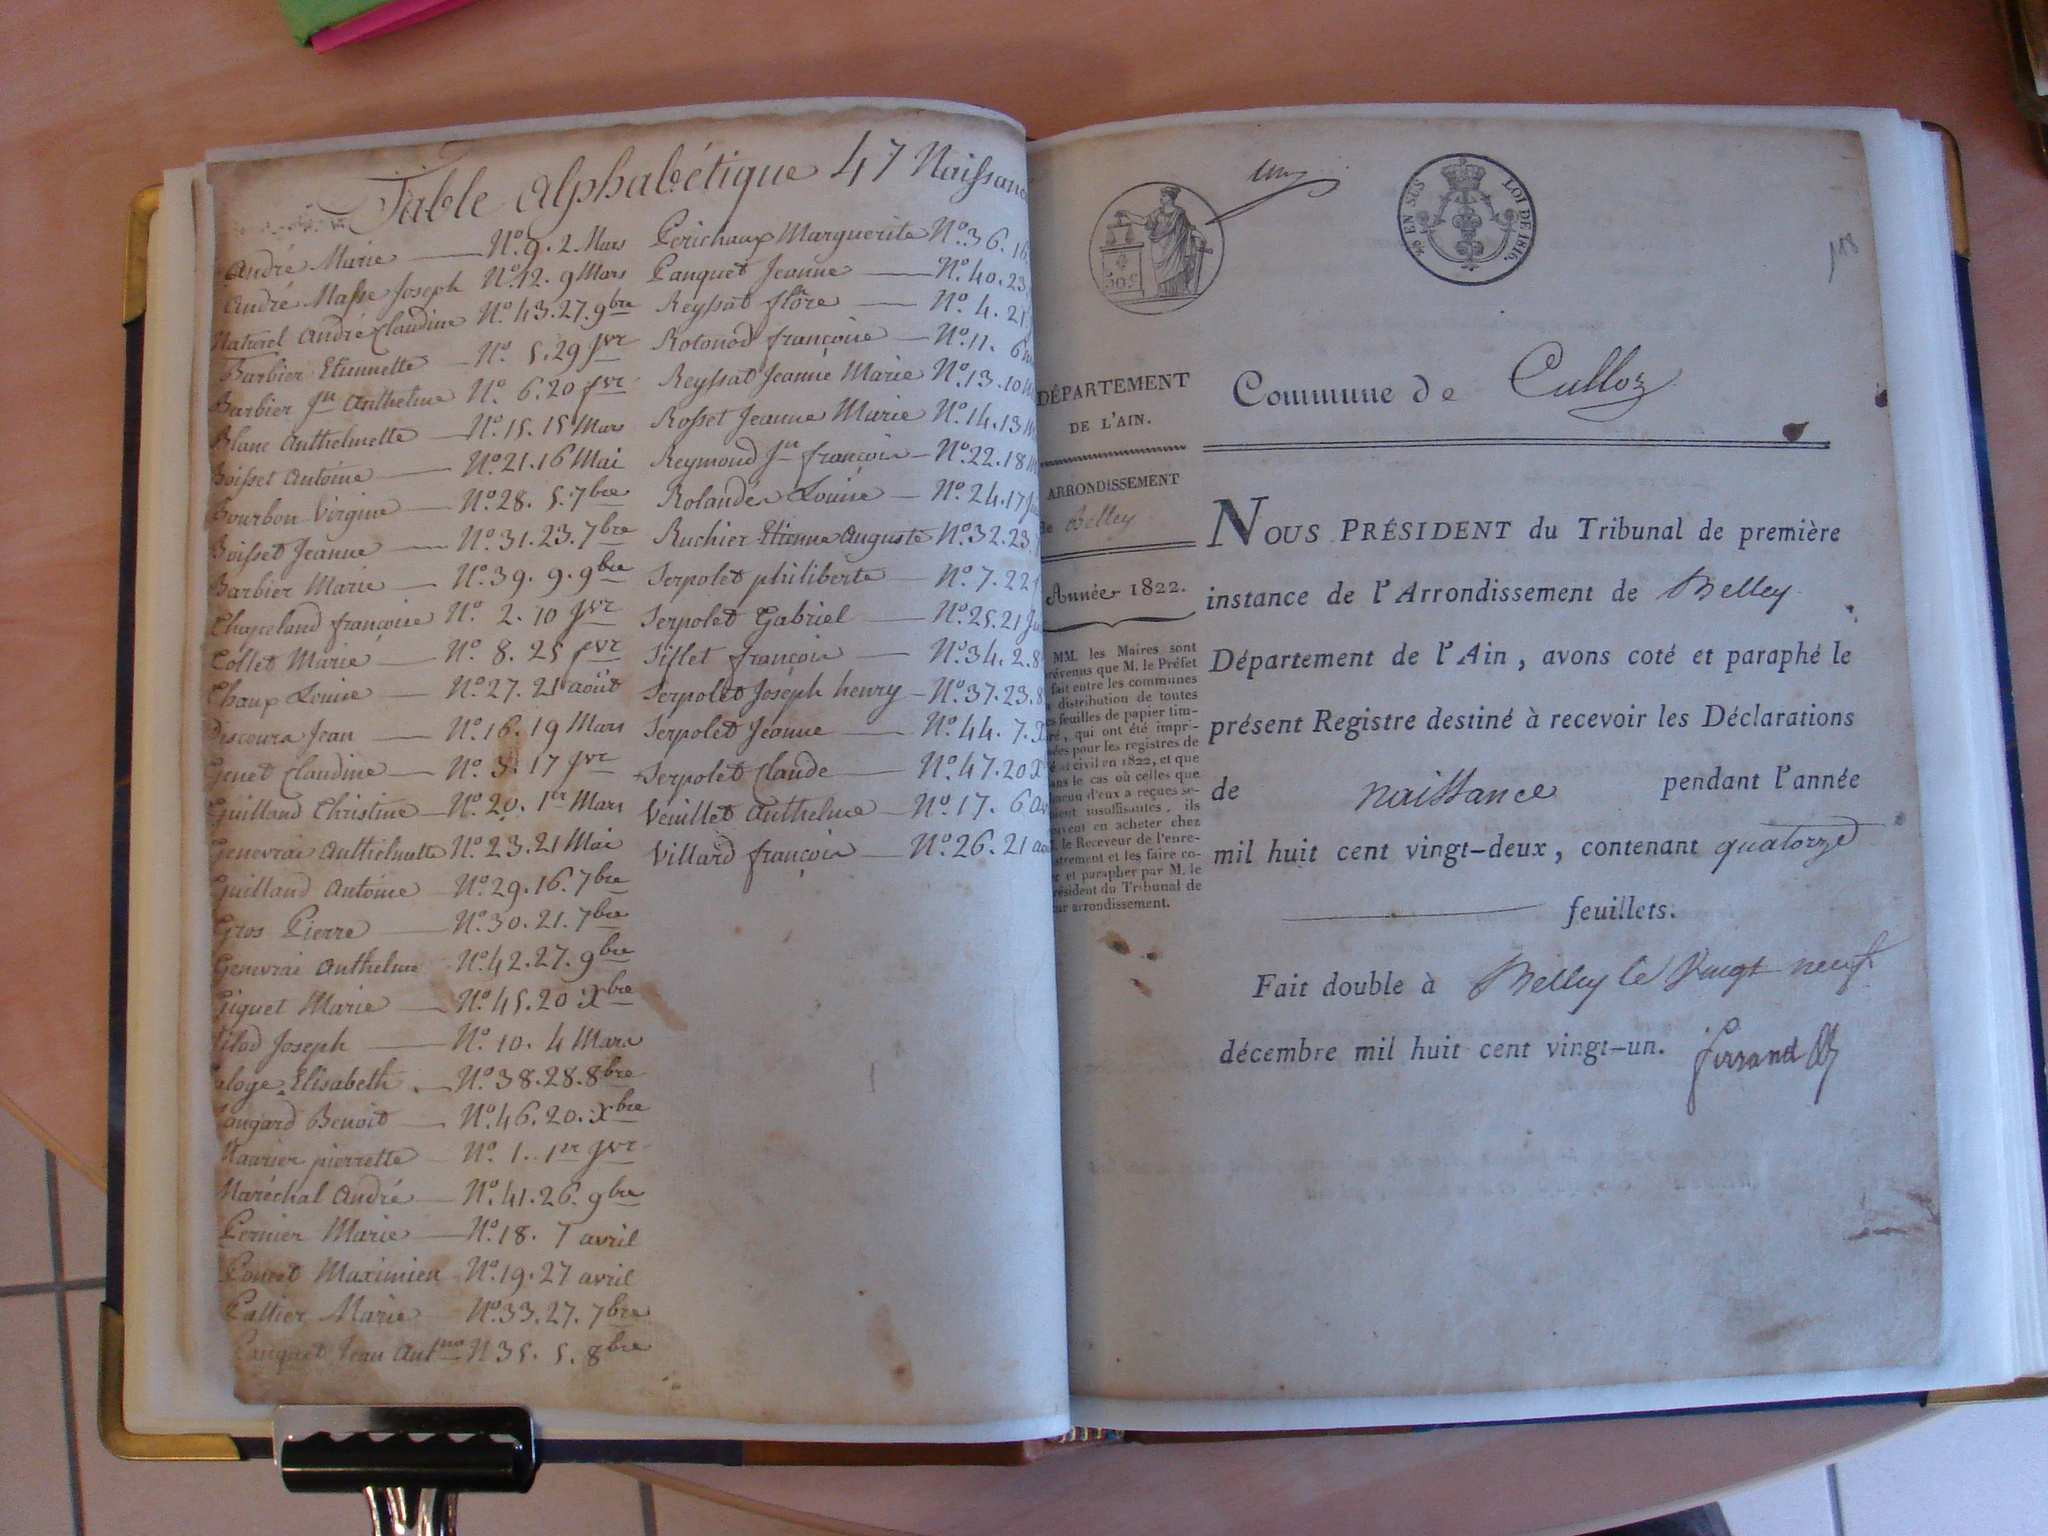 Table Alphabétique 47 Naissanc
André Marie N.º 9. 2. Mars
André Masse Joseph N.º 12. 9 Mars
Naturel André Claudine N.º 43. 27. 9bre
Barbier Etiennette N.º 5. 29 jvr
Barbier jn Anthelme N.º 6. 20 fvr
Blanc Anthelmette N.º 15. 15 Mars
Boisset Antoine N.º 21. 16 Mai
Bourbon Virginie N.º 28. 5. 7bre
Boisset Jeanne N.º 31. 23. 7bre
Barbier Marie N.º 39. 9. 9bre
Chapeland françoise N.º 2. 10 jvr
Collet Marie N.º 8. 25 fvr
Chaux Louise N.º 27. 21 août
Descours Jean N.º 16. 19 Mars
Genet Claudine N.º 3. 17 jvr
Guilland Christine N.º 20. 1er Mars
Genevrai Anthelmette N.º 23. 21 Mai
Guilland Antoine N.º 29. 16. 7bre
Gros Pierre N.º 30. 21. 7bre
Genevrai Anthelme N.º 42. 27. 9bre
Giguet Marie N.º 45. 20 Xbre
Joseph N.º 10. 4 Mars
Elisabeth N.º 38. 28. 8bre
Benoit N.º 46. 20. Xbre
pierrette N.º 1. 1er jvr
Maréchal André N.º 41. 26. 9bre
Pernier Marie N.º 18. 7 avril
Poncet Maximien N.º 19. 27 avril
Pallier Marie N.º 33. 27. 7bre
Panguet Jean Antne N 35. 5. 8bre
Perichaux Marguerite N.º 36. 16
Panguet Jeanne N.º 40. 23
Reyssat flore N.º 4. 21
françoise N.º 11. 6
Reyssat Jeanne Marie N.º 13. 10
Rosset Jeanne Marie N.º 14. 13
Reymond jn françois N.º 22. 18
Rolande Louise N.º 24. 17
Ruchier Etienne Auguste N.º 32. 23.
Serpolet philiberte N.º 7. 22
Serpolet Gabriel N.º 25. 21
françois N.º 34. 2. 8
Serpolet Joseph henry N.º 37. 23. 8
Serpolet Jeanne N.º 44. 7. X
Serpolet Claude N.º 47. 20 X
Veuillet Anthelme N.º 17. 6
Villard françois N.º 26. 21
50 c
40 EN SUS LOI DE 1816.
118
DÉPARTEMENT
DE L'AIN.
ARRONDISSEMENT
de Belley
Année 1822.
MM. les Maires sont
prévenus que M. le Préfet
fait entre les communes
distribution de toutes
feuilles de papier tim-
bré, qui ont été impri-
mées pour les registres de
état civil en 1822, et que
dans le cas où celles que
chacun d'eux a reçues se-
raient insuffisantes, ils
peuvent en acheter chez
M. le Receveur de l'enre-
gistrement et les faire co-
ter et parapher par M. le
Président du Tribunal de
leur arrondissement.
Commune de Culloz
NOUS PRÉSIDENT du Tribunal de première
instance de l'Arrondissement de Belley
Département de l'Ain, avons coté et paraphé le
présent Registre destiné à recevoir les Déclarations
de naissance pendant l'année
mil huit cent vingt-deux, contenant quatorze
feuillets.
Fait double à Belley le Vingt neuf
décembre mil huit cent vingt-un.